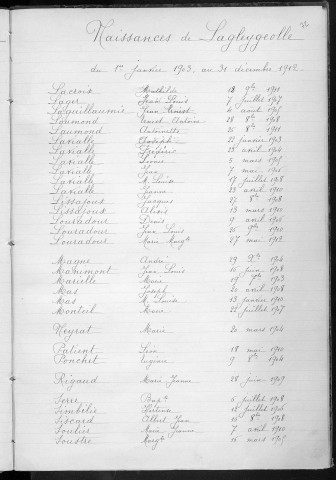 Naissances de Lagleygeolle
du 1er janvier 1903 au 31 décembre 1912.
Lacroix Mathilde 13 9bre 1901
Lager Jean Louis 7 juillet 1907
Laguillaumie Jean Ernest 4 août 1905
Laumond Ernest Antoine 28 8bre 1908
Laumond Antoinette 26 8bre 1911
Lavialle 22 janvier 1903
Lavialle 23 avril 1904
Lavialle Léonie 5 mars 1905
Lavialle Jean 7 mai 1906
Lavialle M. Louise 17 juillet 1908
Lavialle Jeanne 23 avril 1910
Lissajoux Jacques 27 8bre 1908
Lissajoux Alexis 13 mars 1910
Louradour Denis 9 avril 1906
Louradour Jean Louis 25 9bre 1910
Louradour Marie Margte 27 mai 1912
Magne André 29 9bre 1904
Maremont Jean Louis 15 juin 1908
Marielle Marie 19 1903
Mas Joseph 20 avril 1908
Mas M. Louise 13 janvier 1910
Monteil Marie 22 juillet 1907
Neyrat Marie 20 mars 1904
Patient Léon 18 mai 1910
Ponchet Eugène 9 8bre 1904
Rigaud Marie Jeanne 28 juin 1909
Serre Bapte 6 juillet 1908
Simbélie 15 juillet 1905
Siscard Albert Jean 15 8bre 1908
Soulier Marie Jeanne 7 avril 1910
Soustre Margte 15 mars 1905